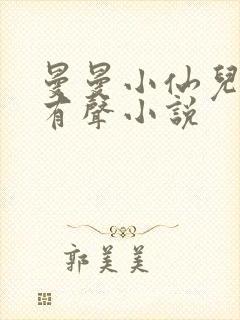 曼曼小仙兒
有聲小說
郭美美